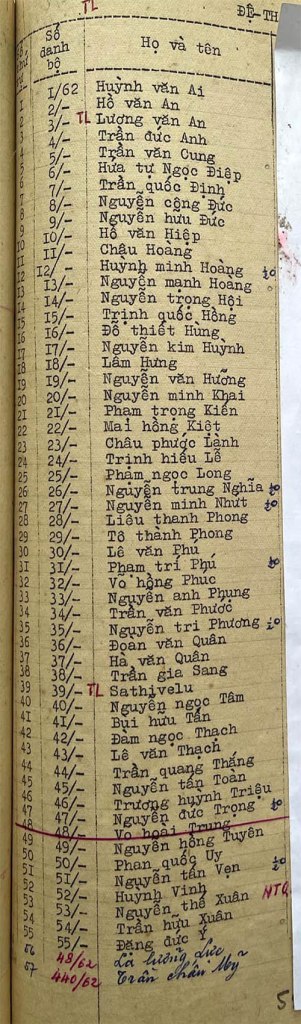 TL
ĐỆ-TH
Số danh bộ Họ và tên
1 1/62 Huỳnh văn Ai
2 2/- Hồ văn An
3 3/- TL Lương văn An
4 4/- Trần đức Anh
5 5/- Trần văn Cung
6 6/- Hứa tự Ngọc Điệp
7 7/- Trần quốc Định
8 8/- Nguyễn công Đức
9 9/- Nguyễn hữu Đức
10 10/- Hồ văn Hiệp
11 11/- Châu Hoàng
12 12/- Huỳnh minh Hoàng
13 13/- Nguyễn mạnh Hoang
14 14/- Nguyễn trọng Hội
15 15/- Trịnh quốc Hồng
16 16/- Đỗ thiết Hùng
17 17/- Nguyễn kim Huỳnh
18 18/- Lâm Hưng
19 19/- Nguyễn văn Hưỡng
20 20/- Nguyễn minh Khai
21 21/- Phạm trọng Kiến
22 22/- Mai hồng Kiệt
23 23/- Châu phước Lành
24 24/- Trịnh hiếu Lễ
25 25/- Phạm ngọc Long
26 26/- Nguyễn trung Nghĩa
27 27/- Nguyễn minh Nhựt
28 28/- Liêu thanh Phong
29 29/- Tô thành Phong
30 30/- Lê văn Phu
31 31/- Phạm trí Phú
32 32/- Vo hồng Phuc
33 33/- Nguyễn anh Phụng
34 34/- Trần văn Phước
35 35/- Nguyễn tri Phương
36 36/- Đoạn văn Quân
37 37/- Hà văn Quân
38 38/- Trần gia Sang
39 39/- TL Sathivelu
40 40/- Nguyễn ngọc Tâm
41 41/- Bụi hữu Tấn
42 42/- Đam ngọc Thạch
43 43/- Lê văn Thạch
44 44/- Trần quang Thắng
45 45/- Nguyễn tấn Toàn
46 46/- Trương huỳnh Triệu
47 47/- Nguyễn đức Trọng
48 48/- Vo hoài Trung
49 49/- Nguyễn hồng Tuyên
50 50/- Phan quốc Uy
51 51/- Nguyễn tấn Vẹn
52 52/- Huỳnh Vinh
53 53/- Nguyễn thế Xuân NTQ
54 54/- Trần hữu Xuân
55 55/- Đặng đức Ý
56 48/62 Lã lương Lực
57 440/62 Trần chấn Mỹ
5